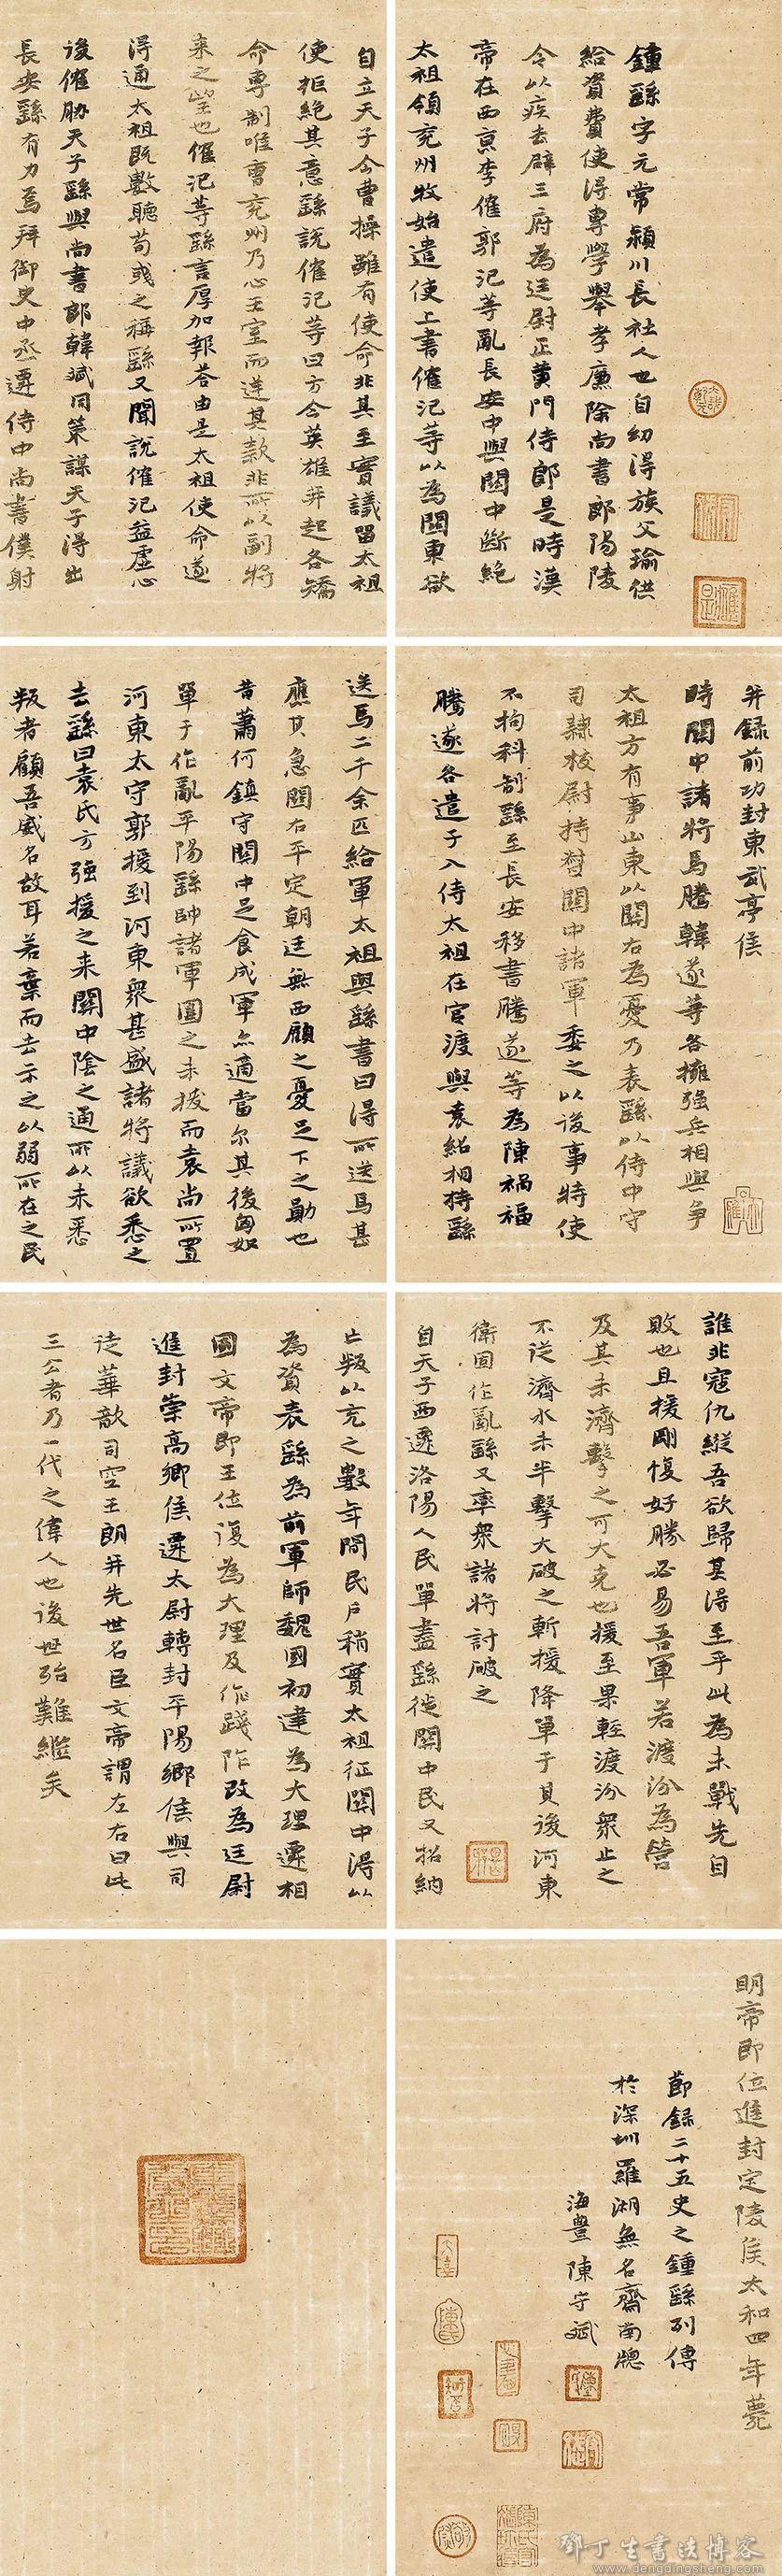 鍾繇字元常潁川長社人也自幼得族父瑜供
給資費使得專學舉孝廉除尚書郎陽陵
令以疾去辟三府為廷尉正黄門侍郎是時漢
帝在西京李傕郭汜等亂長安中與關中斷絶
太祖領兗州牧始遣使上書傕汜等以為關東欲
自立天子今曹操雖有使命非其至實議留太祖
使拒絕其意繇說傕汜等曰方今英雄并起各矯
命專制唯曹兗州乃心王室而逆其款非所以副將
来之望也傕汜等繇言厚加報荅由是太祖使命遂
得通太祖既數聽荀彧之稱繇又聞說傕汜益虛心
後傕脅天子繇與尚書郎韓斌同策謀天子得出
長安繇有力焉拜御史中丞遷侍中尚書僕射
并録前功封東武亭侯
時關中諸將馬騰韓遂等各擁强兵相與争
太祖方有事山東以關右為憂乃表繇以侍中守
司隸校尉持督關中諸軍委之以後事特使
不拘科制繇至長安移書騰遂等為陳禍福
騰遂各遣子入侍太祖在官渡與袁紹相持繇
送馬二千余匹給軍太祖與繇書曰得所送馬甚
應其急關右平定朝廷無西顧之憂足下之勛也
昔蕭何鎮守關中足食成軍亦適當尔其後匈奴
單于作亂平陽繇帥諸軍圍之未拔而袁尚所置
河東太守郭援到河東衆甚盛諸將議欲悉之
去繇曰袁氏方强援之来關中陰之通所以未悉
叛者顧吾威名故耳若棄而去示之以弱所在之民
誰非寇仇縱吾欲歸其得至乎此為未戰先自
敗也且援剛愎好勝必易吾軍若渡汾為營
及其未濟擊之可大克也援至果輕渡汾衆止之
不從濟水未半擊大破之斬援降單于其後河東
衛固作亂繇又率衆諸將討破之
自天子西遷洛陽人民單盡繇徙關中民又招納
亡叛以充之數年間民户稍實太祖征關中得以
為資表繇為前軍師魏國初建為大理遷相
國文帝即王位復為大理及作踐阼改為廷尉
進封崇高鄉侯遷太尉轉封平陽鄉侯與司
徒華歆司空王朗并先世名臣文帝謂左右曰此
三公者乃一代之偉人也後世殆難繼矣
明帝即位進封定陵侯太和四年薨
節録二十五史之鍾繇列傳
於深圳羅湖無名齋南牕
海豐陳守斌
鄧丁生書法博客
www.dengdingsheng.com